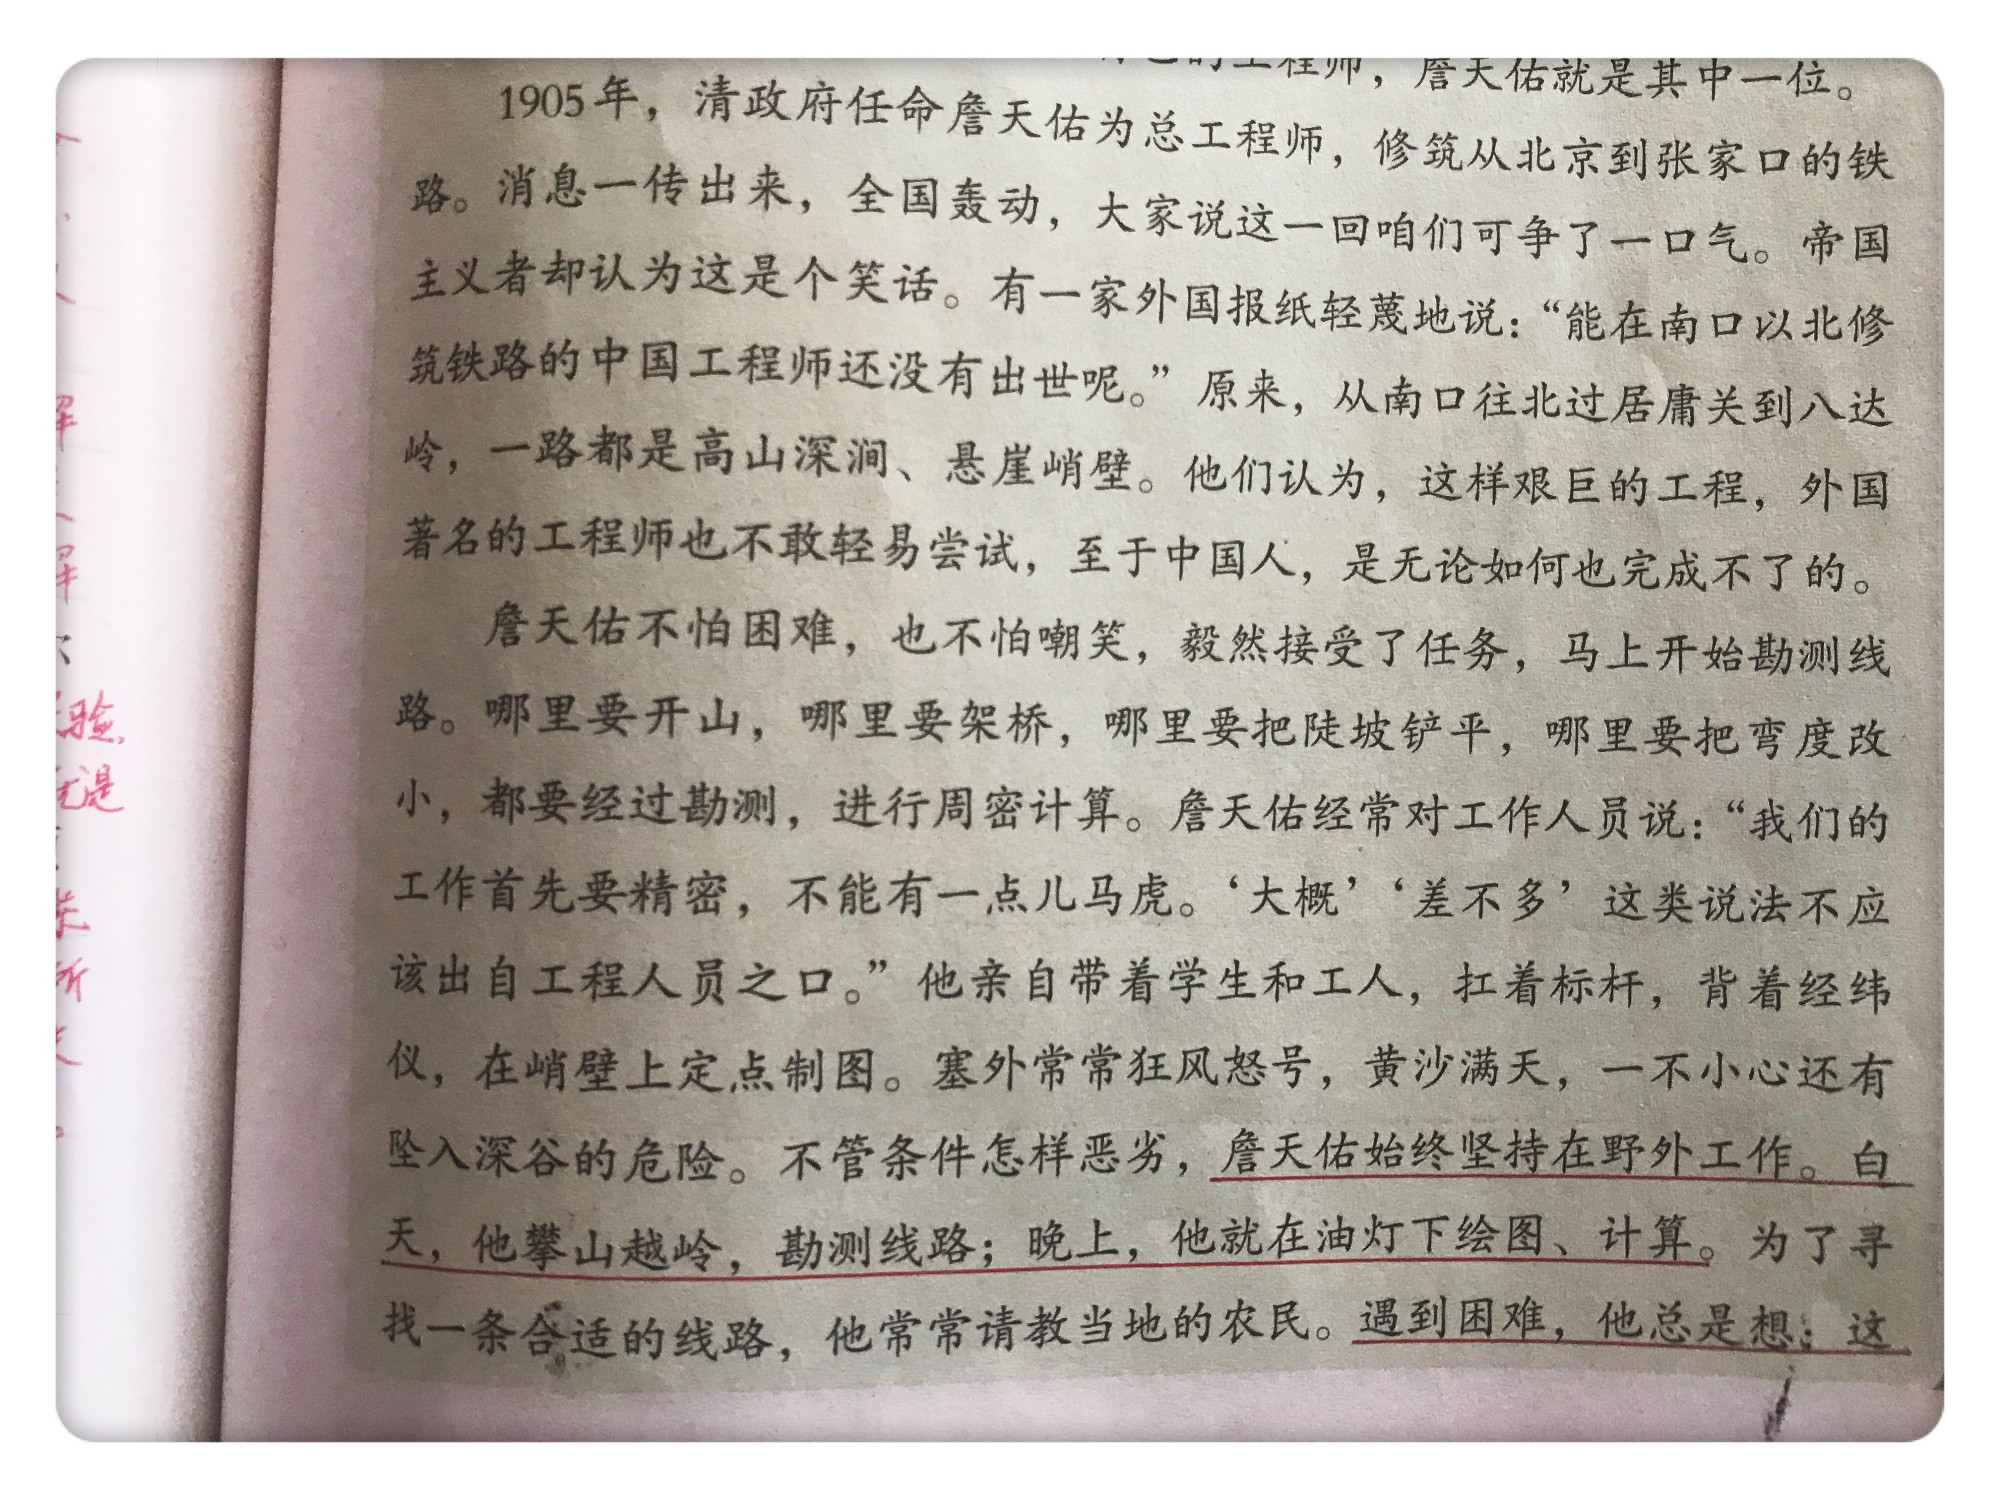 的工程师，詹天佑就是其中一位。
1905年，清政府任命詹天佑为总工程师，修筑从北京到张家口的铁
路。消息一传出来，全国轰动，大家说这一回咱们可争了一口气。帝国
主义者却认为这是个笑话。有一家外国报纸轻蔑地说：“能在南口以北修
筑铁路的中国工程师还没有出世呢。”原来，从南口往北过居庸关到八达
岭，一路都是高山深涧、悬崖峭壁。他们认为，这样艰巨的工程，外国
著名的工程师也不敢轻易尝试，至于中国人，是无论如何也完成不了的。
詹天佑不怕困难，也不怕嘲笑，毅然接受了任务，马上开始勘测线
路。哪里要开山，哪里要架桥，哪里要把陡坡铲平，哪里要把弯度改
小，都要经过勘测，进行周密计算。詹天佑经常对工作人员说：“我们的
工作首先要精密，不能有一点儿马虎。‘大概’‘差不多’这类说法不应
该出自工程人员之口。”他亲自带着学生和工人，扛着标杆，背着经纬
仪，在峭壁上定点制图。塞外常常狂风怒号，黄沙满天，一不小心还有
坠入深谷的危险。不管条件怎样恶劣，詹天佑始终坚持在野外工作。白
天，他攀山越岭，勘测线路；晚上，他就在油灯下绘图、计算。为了寻
找一条合适的线路，他常常请教当地的农民。遇到困难，他总是想：这
验，
是